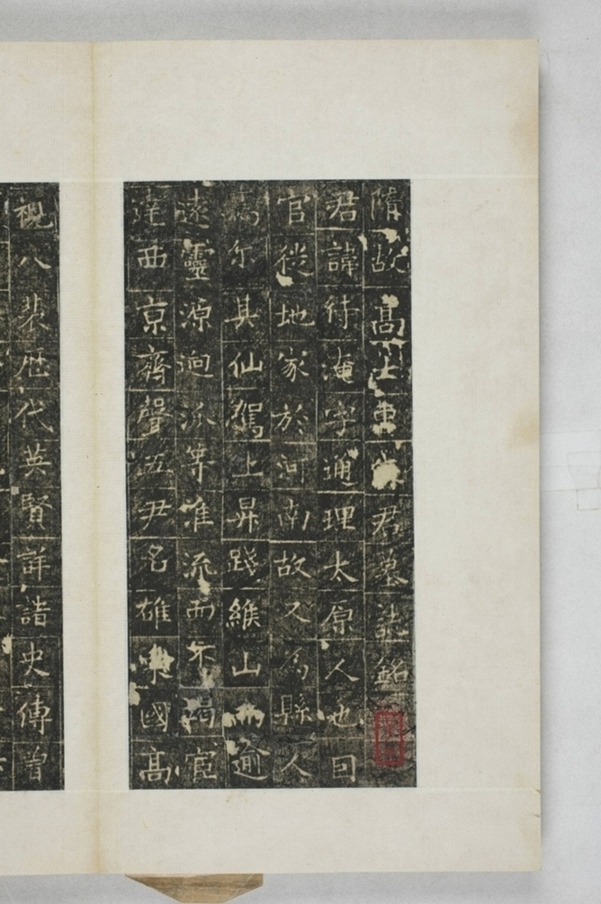 隋故高士君墓誌銘
君諱待淹字通理太原人也囙
官從地家於河南故又為縣人
焉尔其仙駕上昇踐緱山而逾
遠靈源迥泒淮流而不竭官
達西京齊聲五尹名雄東國高
視八裴歷代英賢詳諸史傳曾